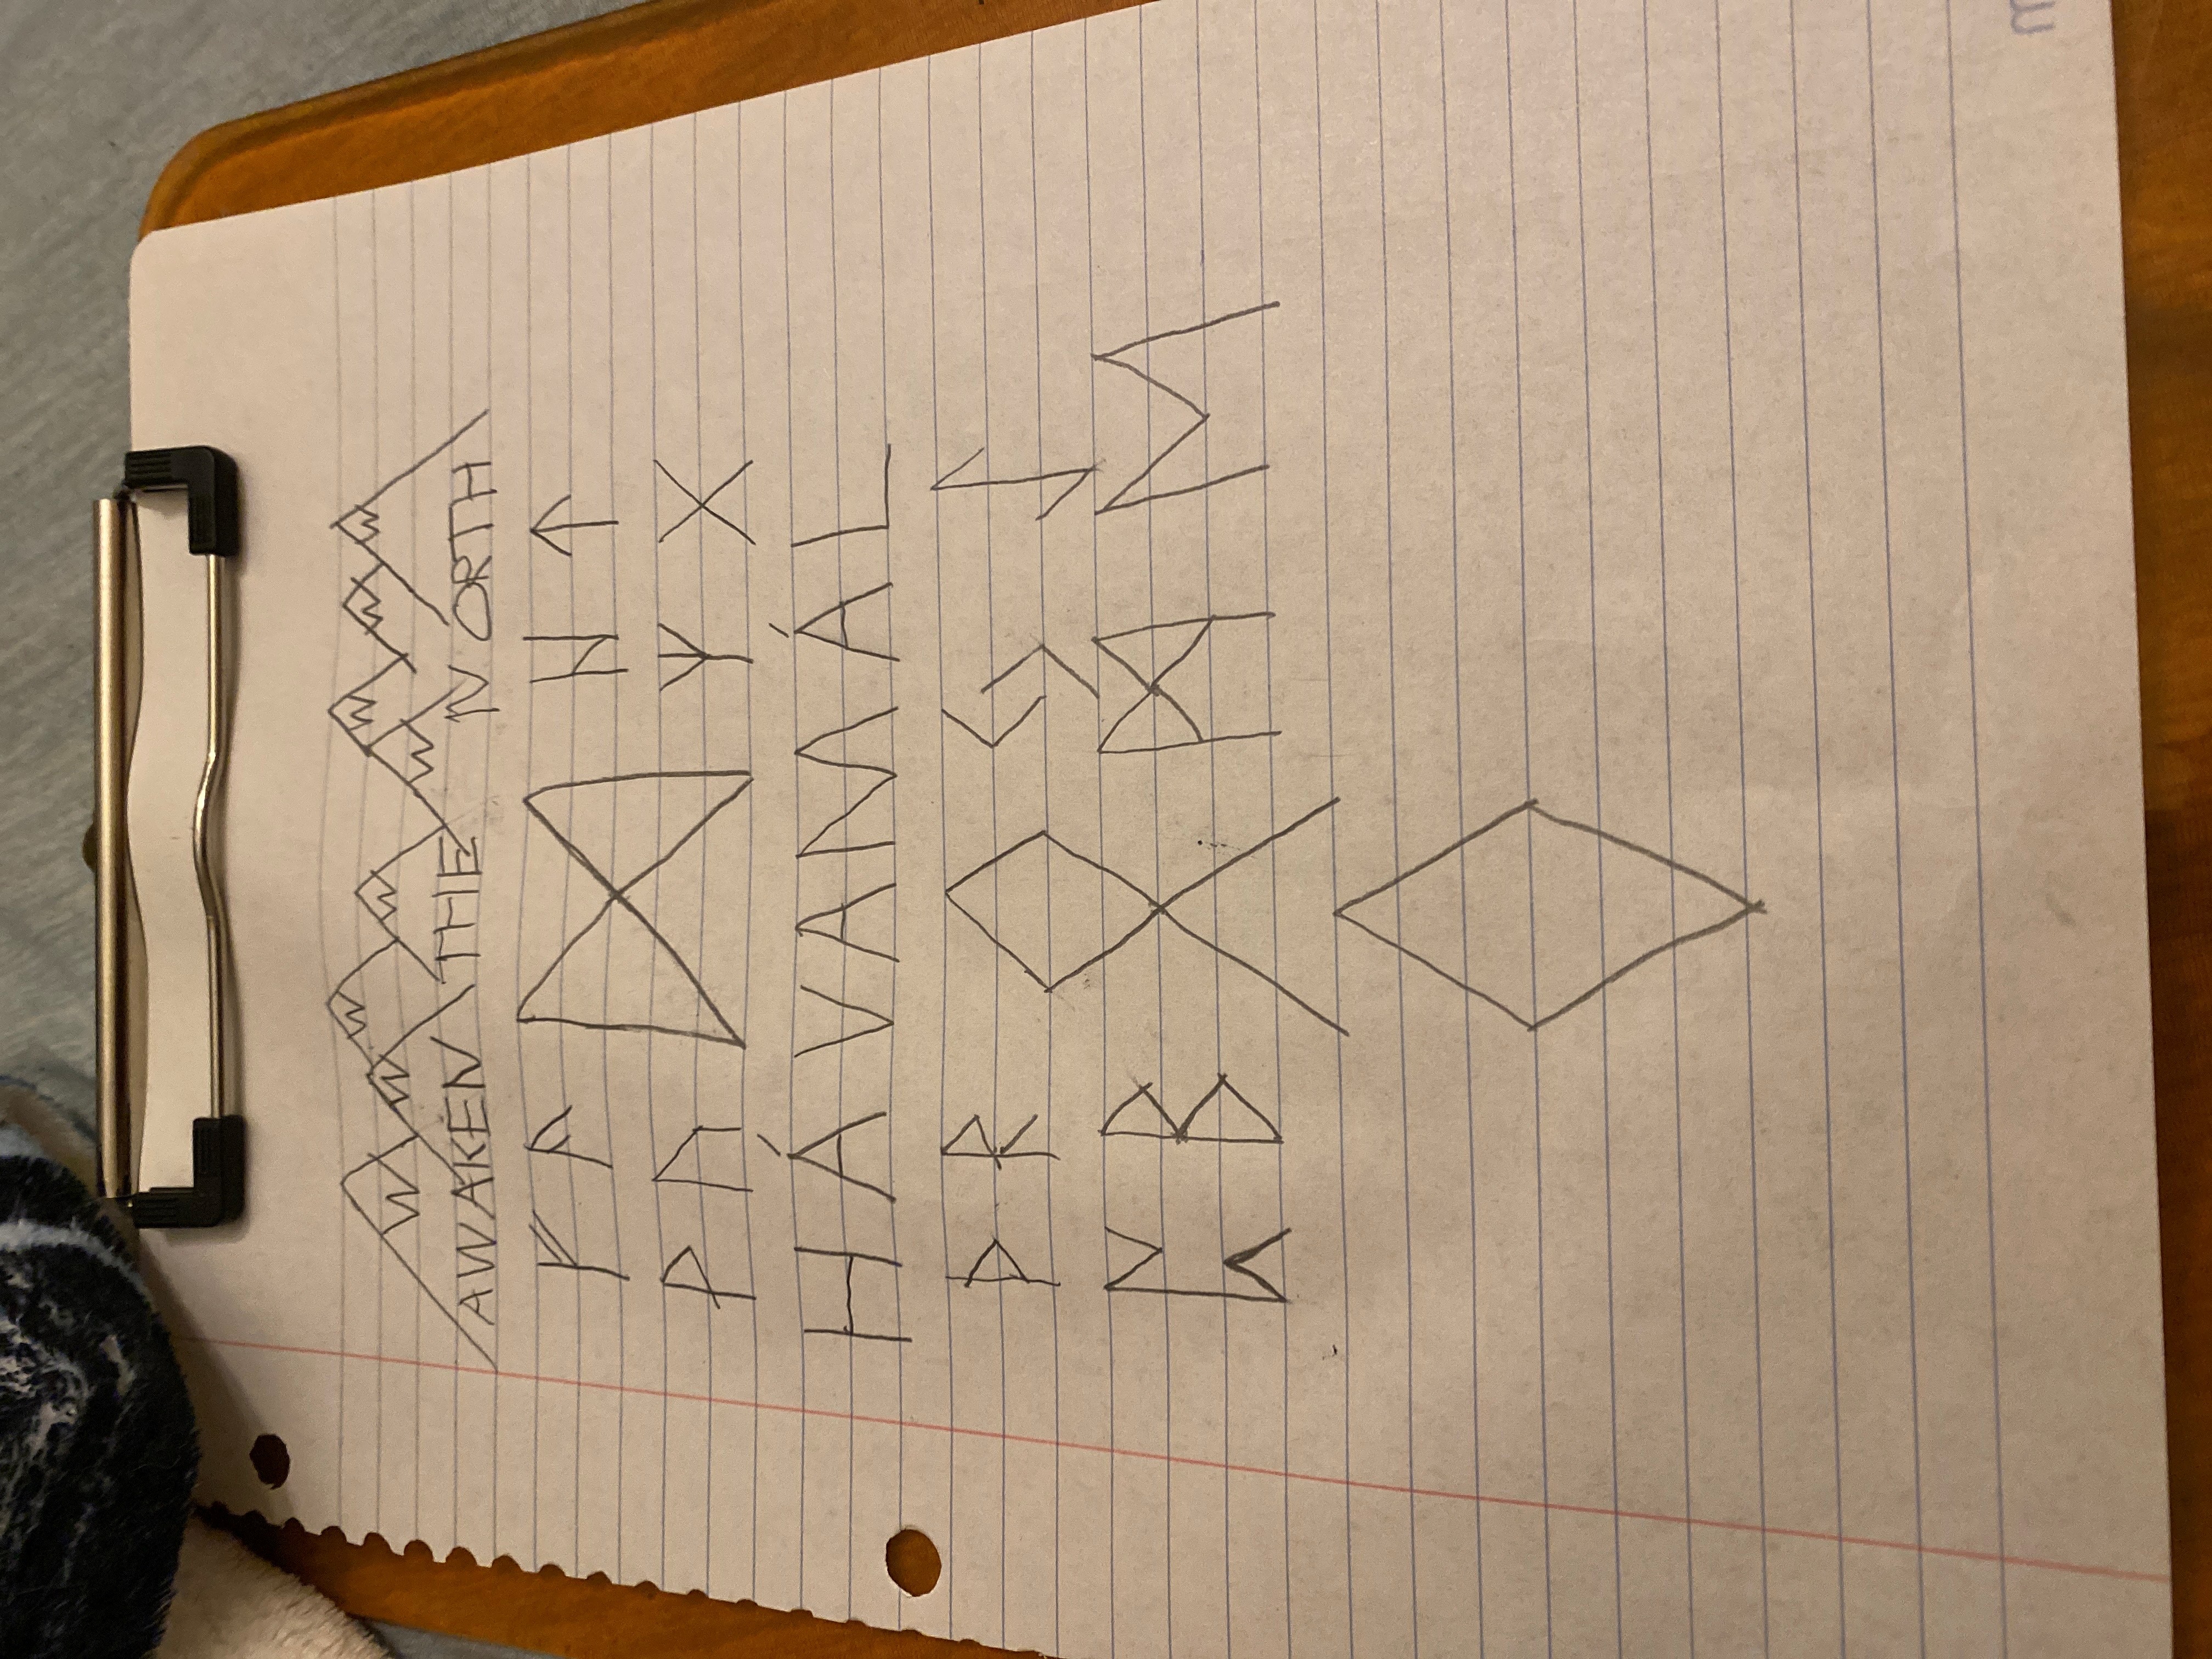 AWAKEN THE NORTH
ᚠ ᚨ ᛞ ᚺ ᛏ
ᚹ ᚢ ᛉ ᚷ
HÁVAMÁL
ᚦ ᚱ ᛟ ᛃ ᛇ
ᛈ ᛒ ᛗ ᛖ
ᛜ